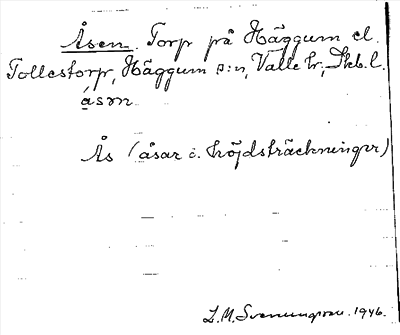 Åsen. Torp på Häggum el.
Tollestorp, Häggum s:n, Valle hr, Skb. l.
åsṃn
Ås (åsar o. höjdsträckningar)
L.M. Svenungsson. 1946.